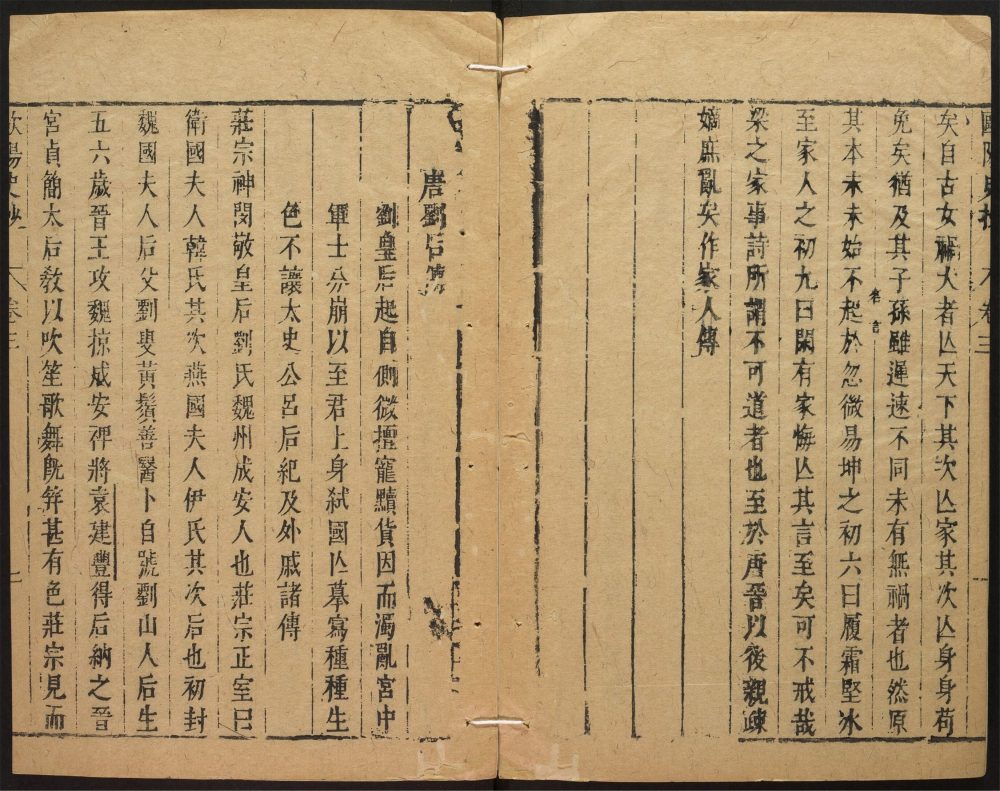 矣自古女禍大者亾天下其次亾家其次亾身身荷
免矣猶及其子孫雖遲速不同未有無禍者也然原
名言
其本末未始不起於忽微易坤之初六曰履霜堅冰
至家人之初九曰閑有家悔亾其言至矣可不戒哉
梁之家事詩所謂不可道者也至於唐晉以後親疎
嫡庶亂矣作家人傳
唐劉后傳
劉皇后起自側微擅寵黷貨因而濁亂宮中
軍士分崩以至君上身弑國亾摹寫種種生
色不讓太史公呂后紀及外戚諸傳
莊宗神閔敬皇后劉氏魏州成安人也莊宗正室曰
衛國夫人韓氏其次燕國夫人伊氏其次后也初封
魏國夫人后父劉叟黃鬚善醫卜自號劉山人后生
五六歲晉王攻魏掠成安裨將袁建豐得后納之晉
宮貞簡太后敎以吹笙歌舞旣笄甚有色莊宗見而
卷三